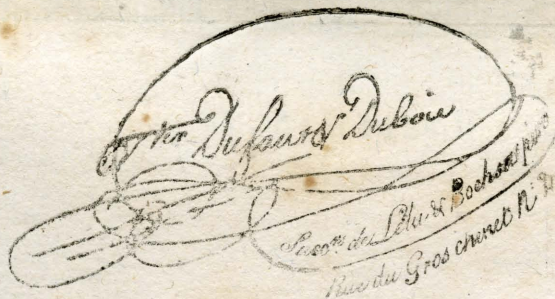 Dufaur & Dubois
Succrs de Lélu & Bochsa père
Rue du Gros chenet N.